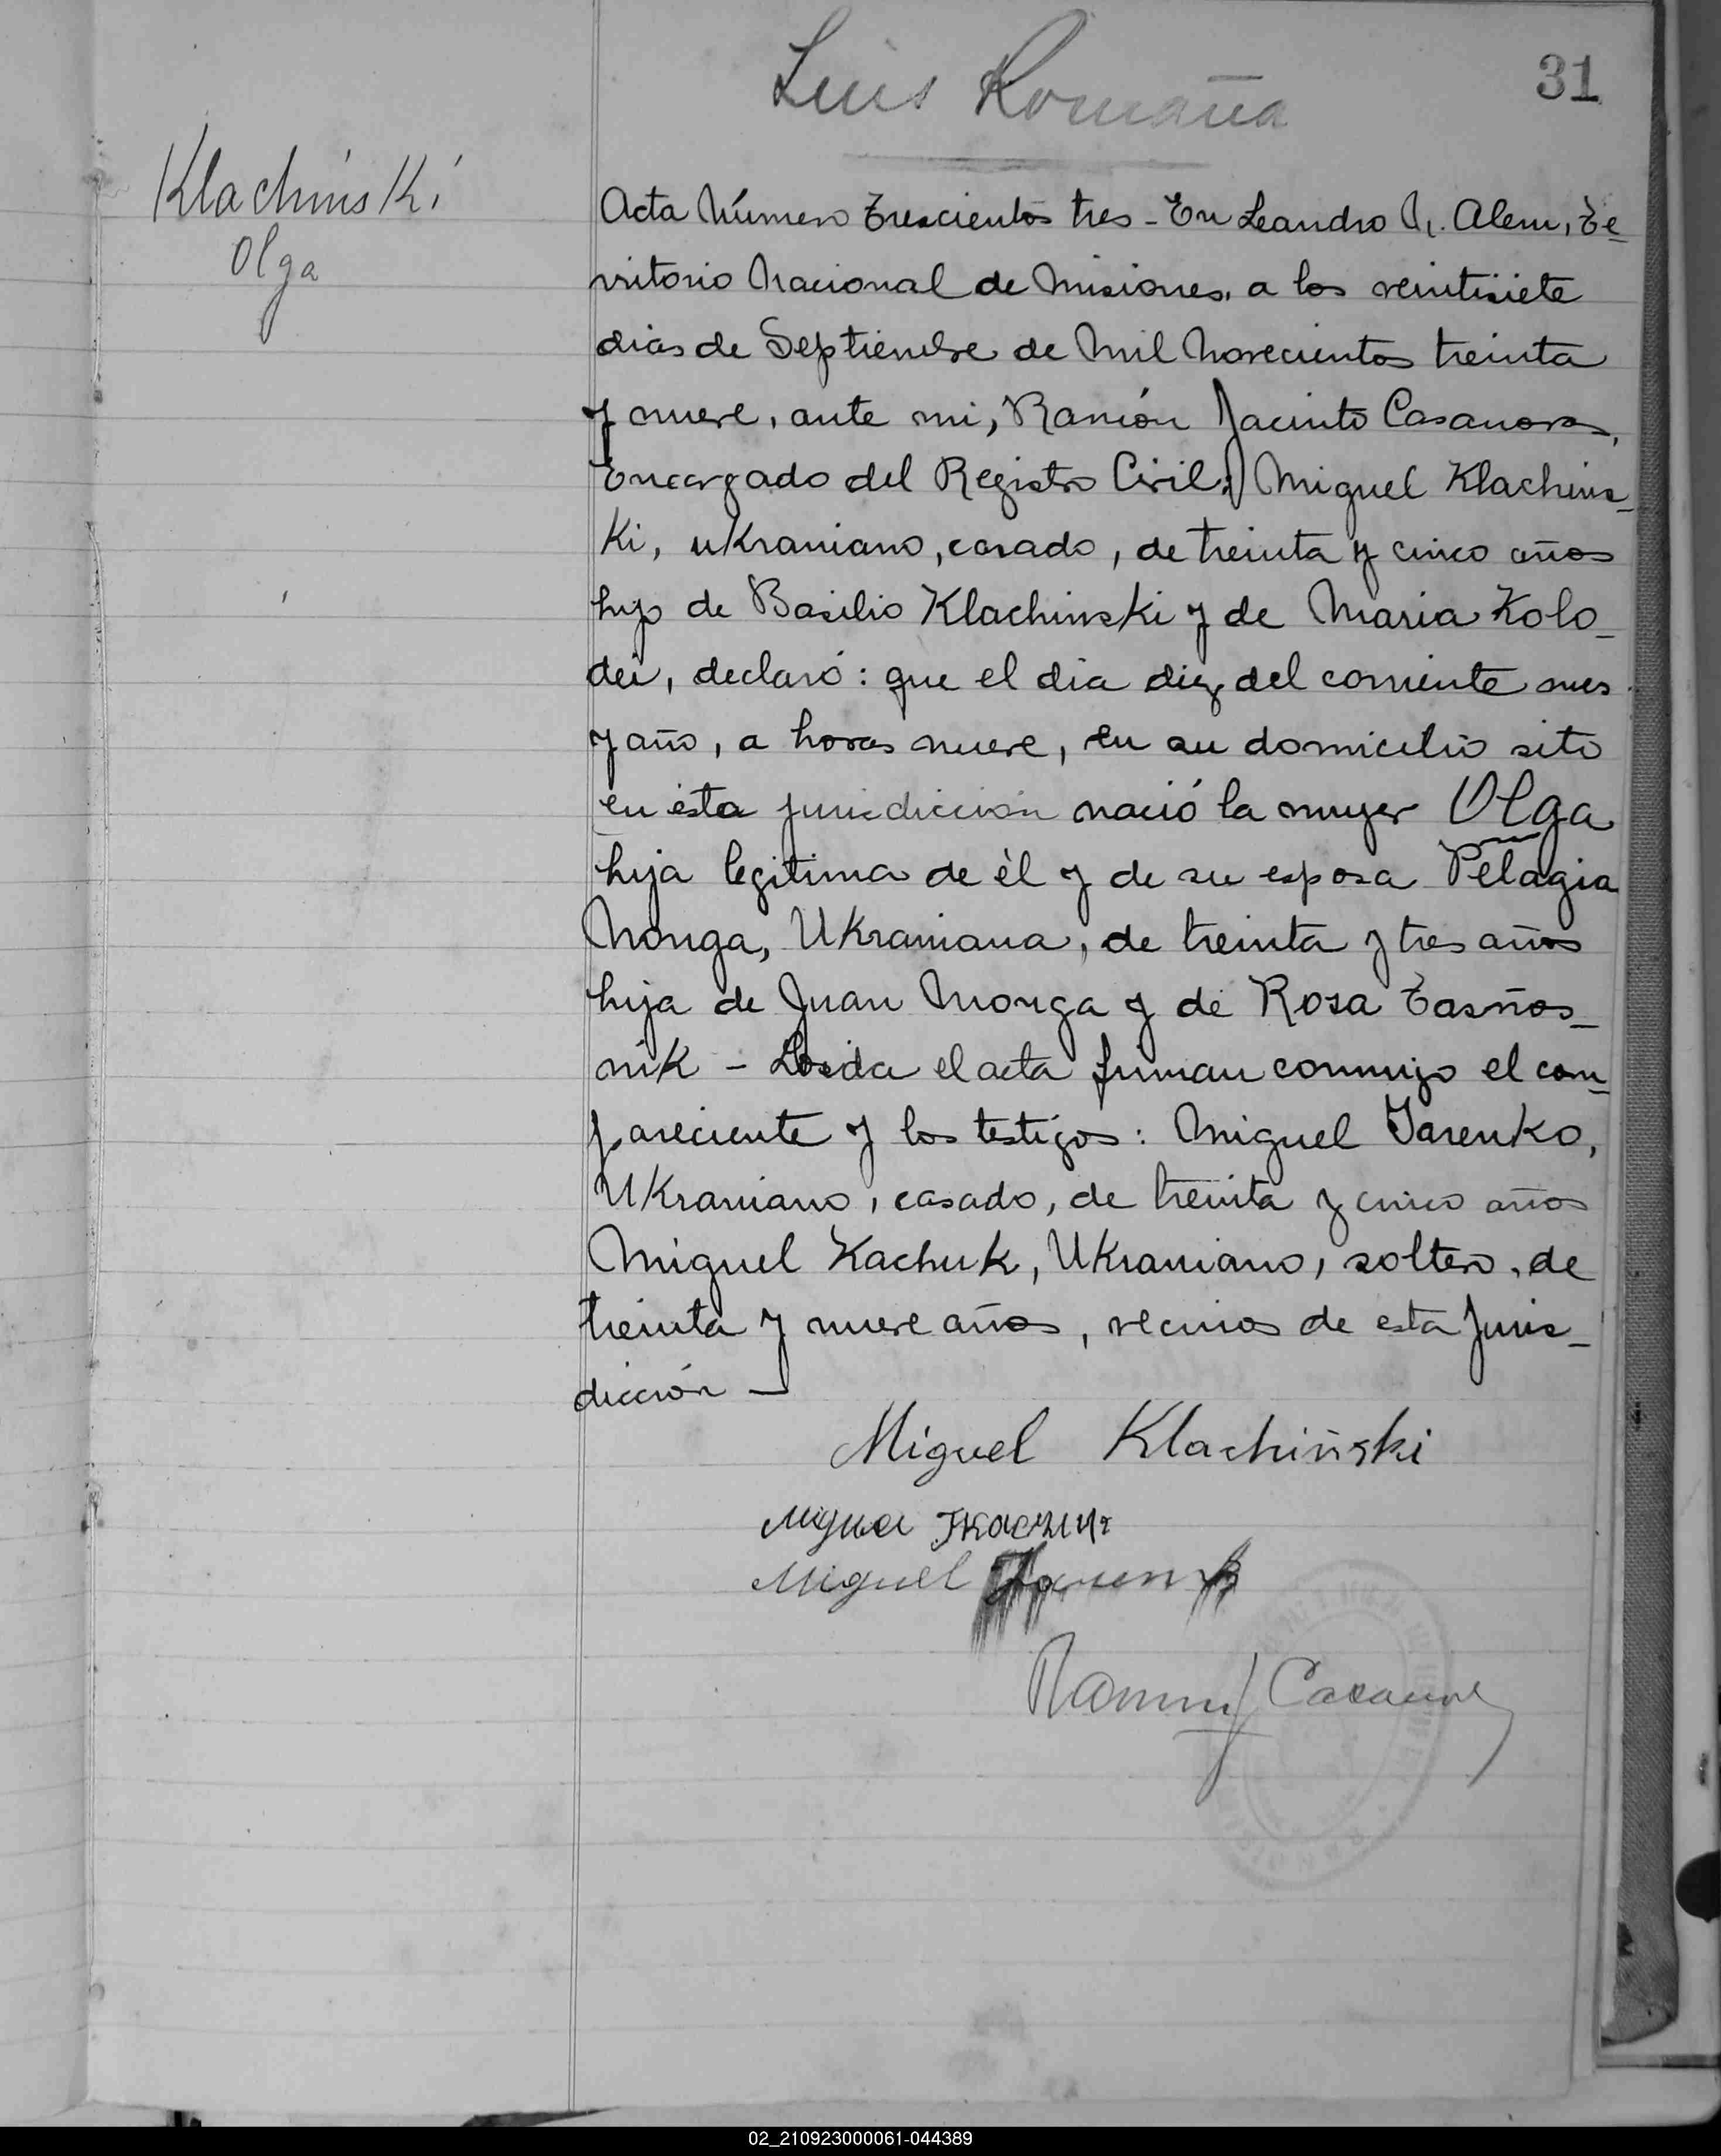 Luis Romaña
31
Klachinski
Olga
Acta Número Trescientos tres - En Leandro N. Alem, Te-
rritorio Nacional de Misiones, a los veintisiete
dias de Septiembre de Mil Novecientos treinta
y nueve, ante mi, Ramón Jacinto Casanova,
Encargado del Registro Civil, Miguel Klachins-
Ki, uKraniano, casado, de treinta y cinco años
hijo de Basilio Klachinski y de Maria Kolo-
dei, declaró: que el dia diez del corriente mes
y año, a horas nueve, en su domicilio sito
en ésta jurisdicción nació la mujer Olga
hija legitima de él y de su esposa Pelagia
Monga, UKraniana, de treinta y tres años
hija de Juan Monga y de Rosa Tasños-
nik - Leida el acta firman conmigo el com-
pareciente y los testigos: Miguel Jarenko,
UKraniano, casado, de treinta y cinco años
Miguel Kachuk, UKraniano, soltero, de
treinta y nueve años, vecinos de esta Juris-
dicción -
Miguel Klachiński
Miguel
Miguel
Ramón J Casanova
02_210923000061-044389